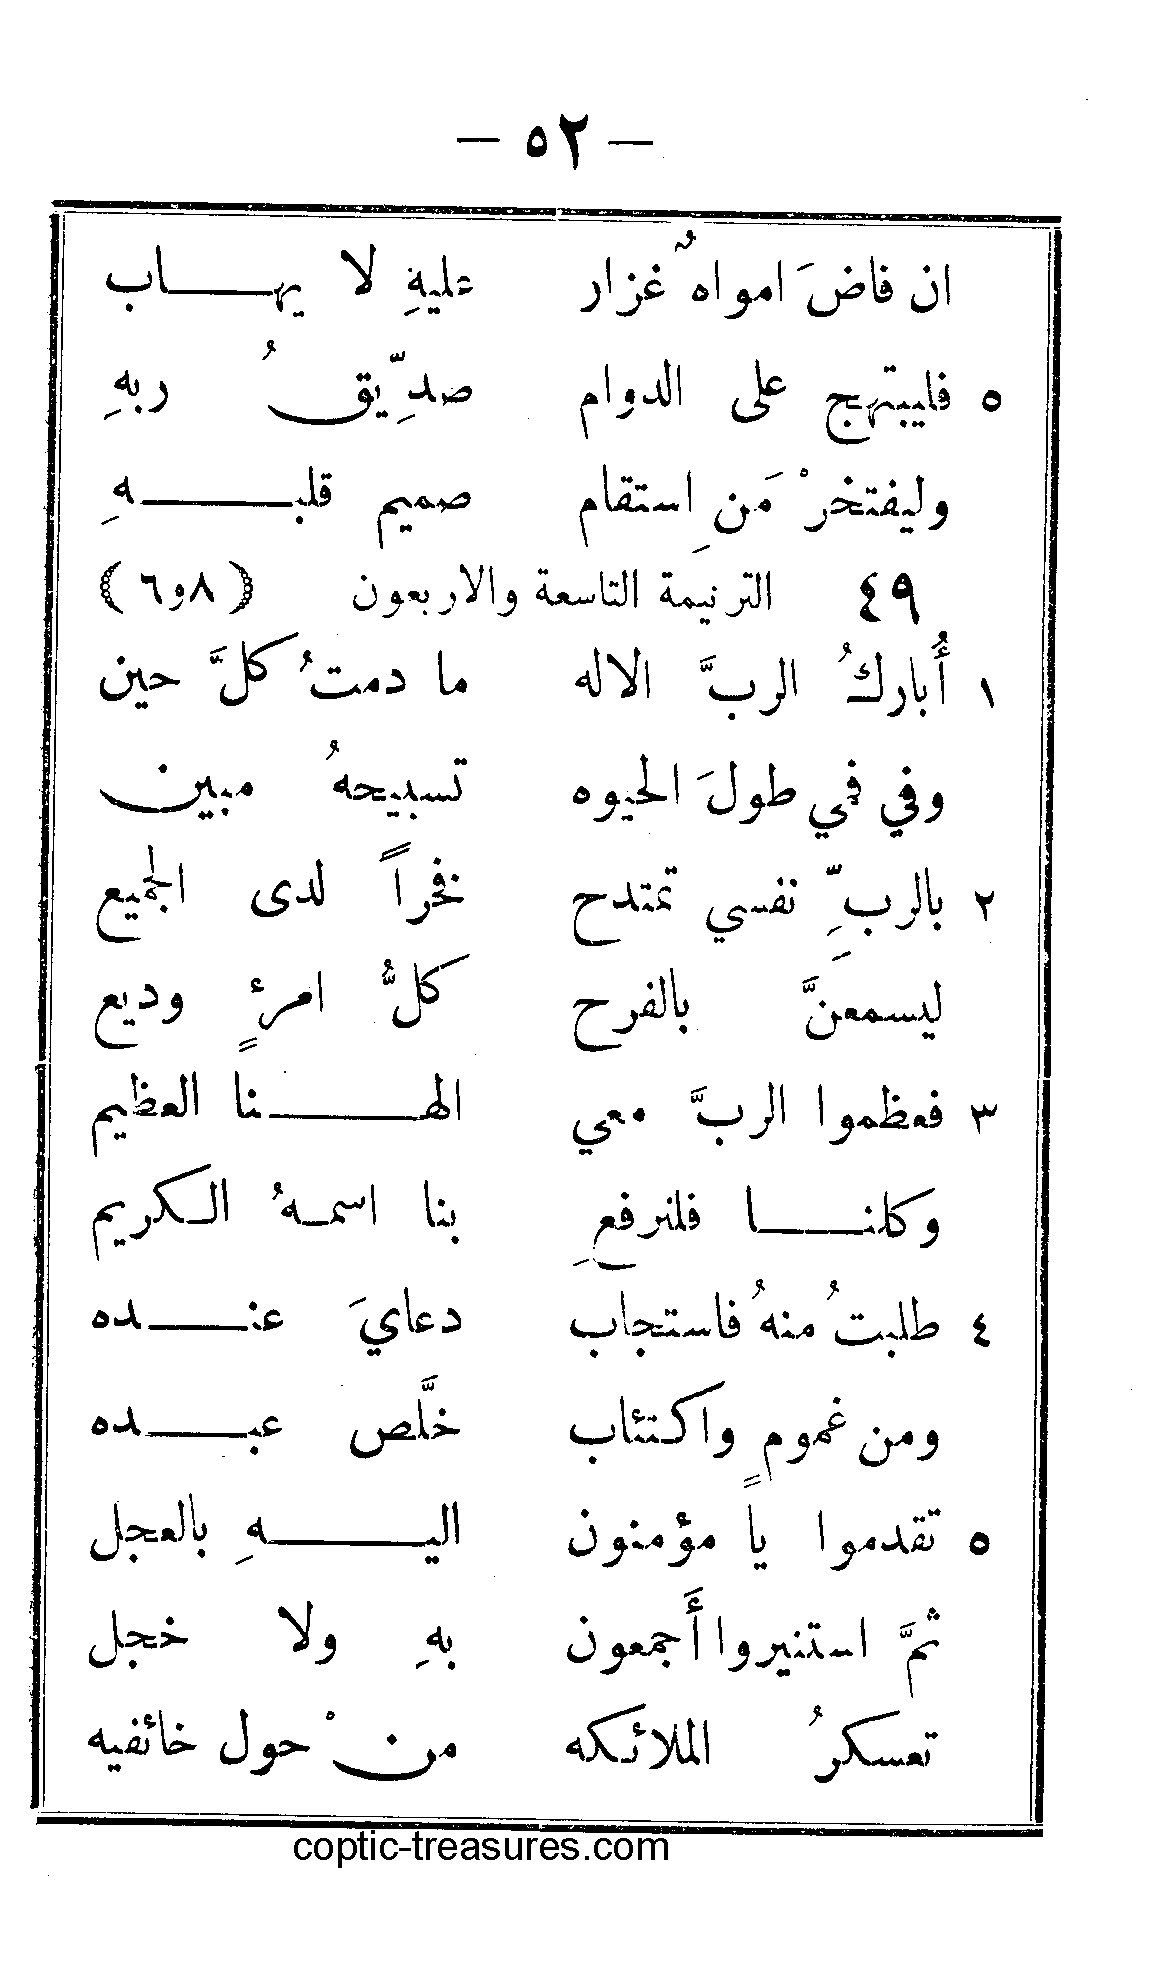 — ٥٢ —
ان فاضَ امواهٌ غزار عليهِ لا يهـــاب
٥ فليبتهج على الدوام صدِّيقُ ربهِ
وليفتخرْ مَنِ استقام صميم قلبـــهِ
٤٩ الترنيمة التاسعة والاربعون (٨و٦)
١ أُباركُ الربَّ الاله ما دمتُ كلَّ حين
وفي فمي طولَ الحيوه تسبيحهُ مبين
٢ بالربِّ نفسي تمتدح فخراً لدى الجميع
ليسمعنَّ بالفرح كلُّ امرءٍ وديع
٣ فعظموا الربَّ معي الهـــنا العظيم
وكلنـــا فلنرفعِ بنا اسمـهُ الـكريم
٤ طلبتُ منهُ فاستجاب دعايَ عنـــده
ومن غمومٍ واكتئاب خلَّص عبـــده
٥ تقدموا يا مؤمنون اليـــهِ بالعجل
ثمَّ استنيروا أَجمعون بهِ ولا خجل
تعسكرُ الملائـكه منْ حول خائفيه
coptic-treasures.com